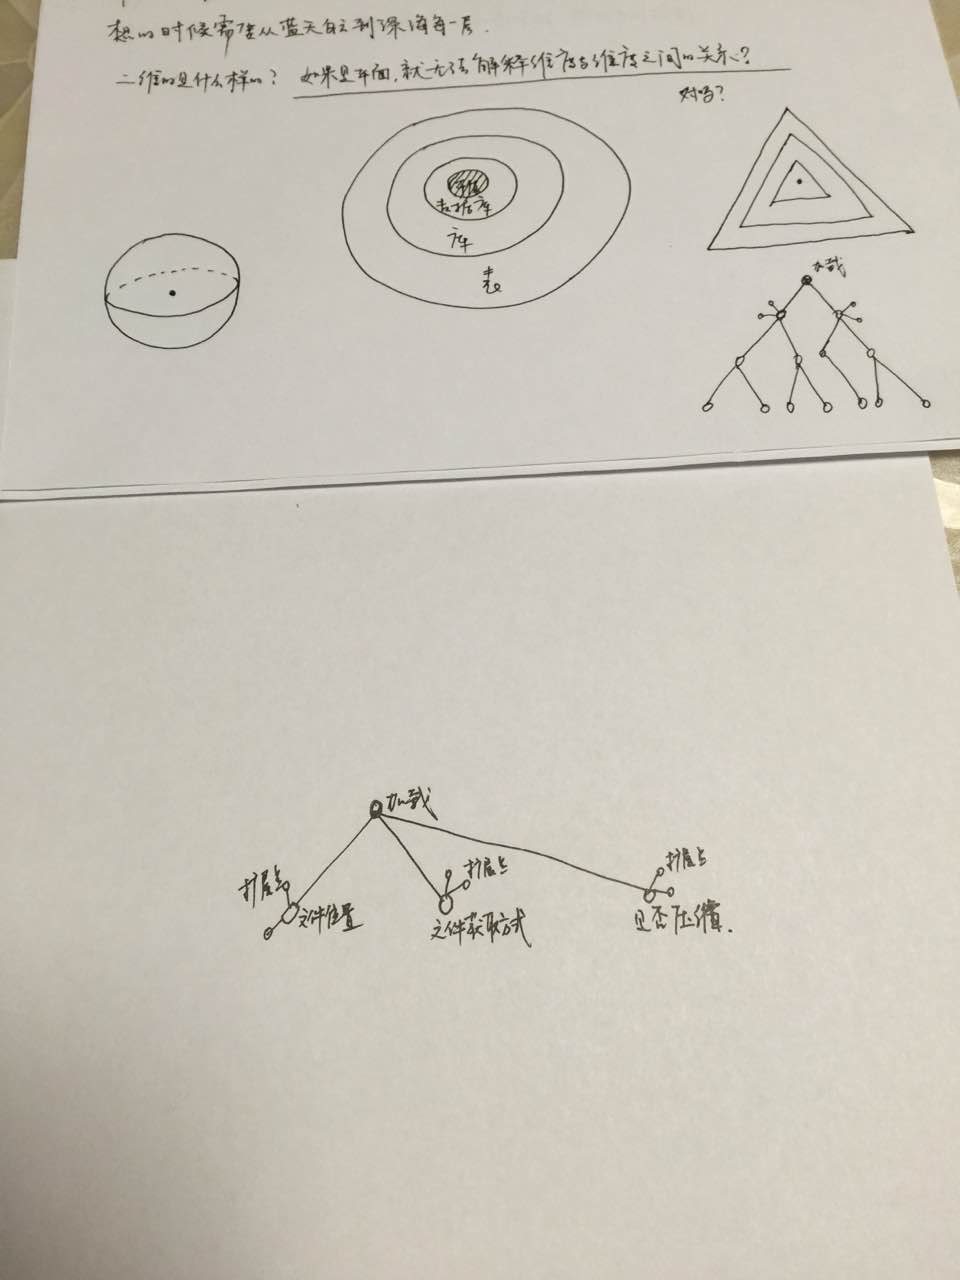 想的时候需要从蓝天白云到深海每一层.
二维的是什么样的？如果是平面,就无法解释维度与维度之间的关系？
对吗？
数据库
库
表
加载
加载
扩展点
文件位置
扩展点
文件获取方式
扩展点
是否压缩.